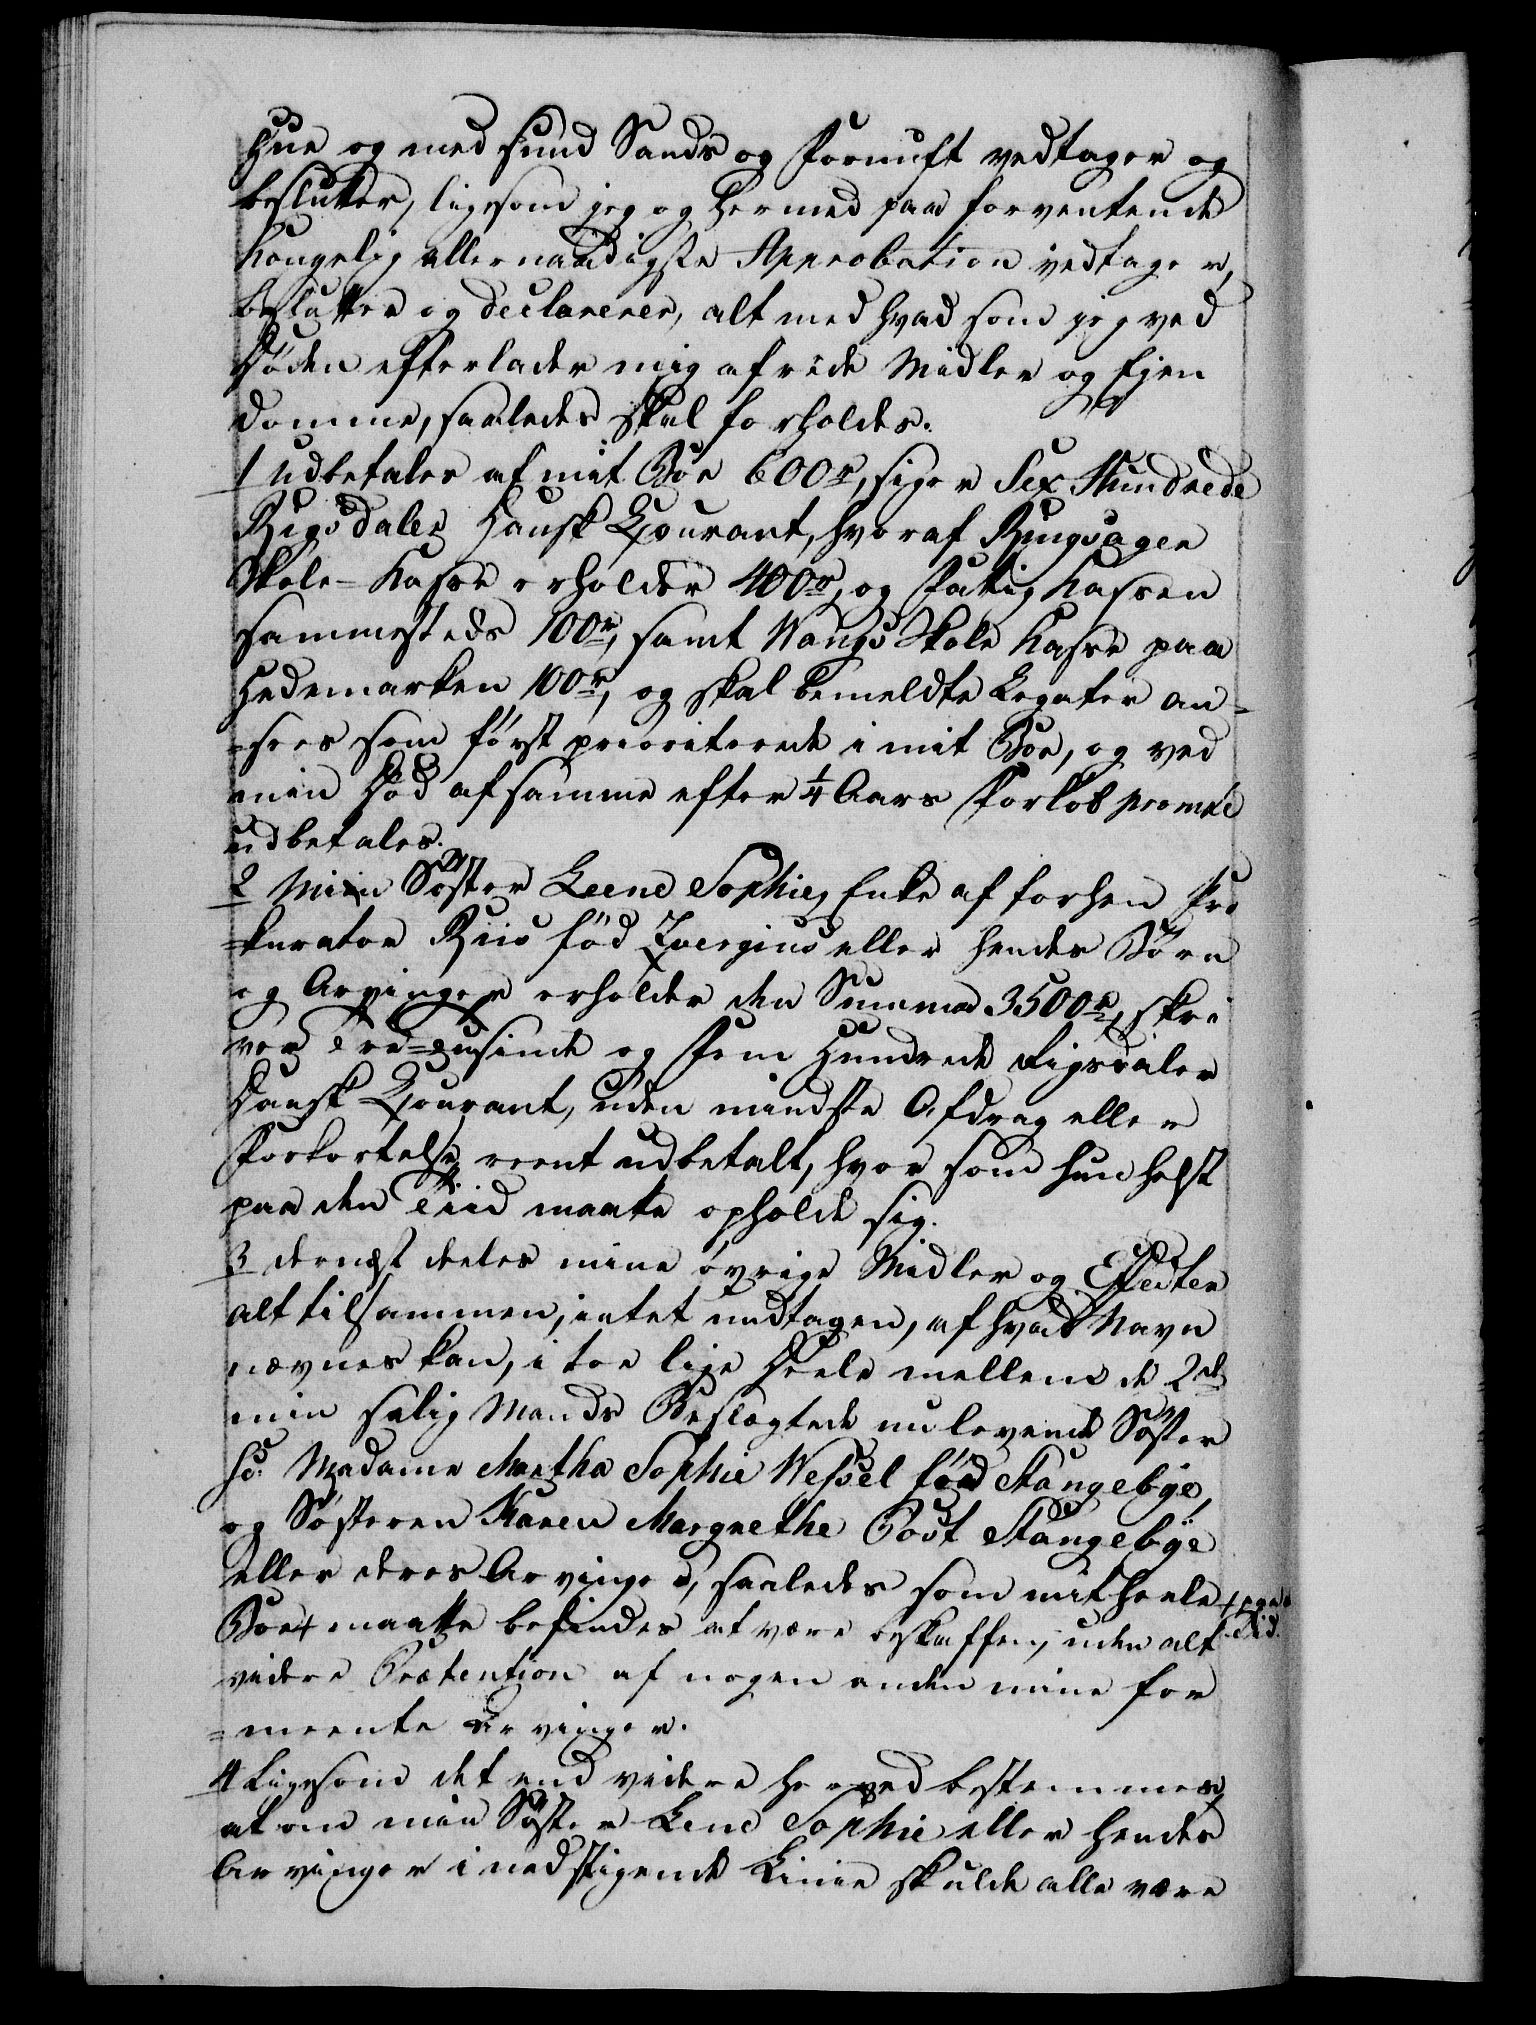 Hue og med sund Sands og Fornuft vedtager og
beslutter, ligesom jeg og hermed paa forventende
Kongelig allernaadigste Approbation vedtager,
beslutter og declarerer, alt med hvad som jeg ved
Døden efterlader mig af rede Midler og Ejen
domme, saaledes skal forholdes.
1 Udbetales af mit Boe 600 rd, siger Sex Hundrede
Rigsdaler Dansk Courant, hvoraf Ringsager
Skole-Kasse erholder 400 rd, og Fattig Kassen
sammesteds 100 rd, samt Wangs Skole Kasse paa
Hedemarken 100 rd, og skal bemeldte Legater an-
-sees som først prioriterede i mit Boe, og ved
min Død af samme efter ¼ Aars Forløb promte
udbetales.
2 Min Søster Leene Sophie, Enke af forhen Pro
-kurator Riis fød Zwergius eller hendes Børn
og Arvinger erholder den Summa 3500 rd, skri
ver Tre-Tusinde og Fem Hundrede Rigsdaler
Dansk Courant, uden mindste Afdrag eller
Forkortelse reent udbetalt, hvor som hun helst
paa den Tiid maatte opholde sig.
3 dernæst deeles mine øvrige Midler og Effecter
alt tilsammen, intet undtagen, af hvad Navn
nævnes kan, i toe lige Deele mellem de 2de
min salig Mands Beslægtede nu levende Søster
Madame Martha Sophie Wessel fød Stangebye,
og Søsteren Karen Margrethe Post Stangebye
eller deres Arvinger, saaledes som mit heele + paa
Boe + maatte befindes at være beskaffen, uden alt Tid.
videre Prætention af nogen anden mine for
-meente Arvinger.
4 Ligesom det end videre herved bestemmes,
at om min Søster Lene Sophie eller hendes
Arvinger i nedstigende Linie skulde alle være